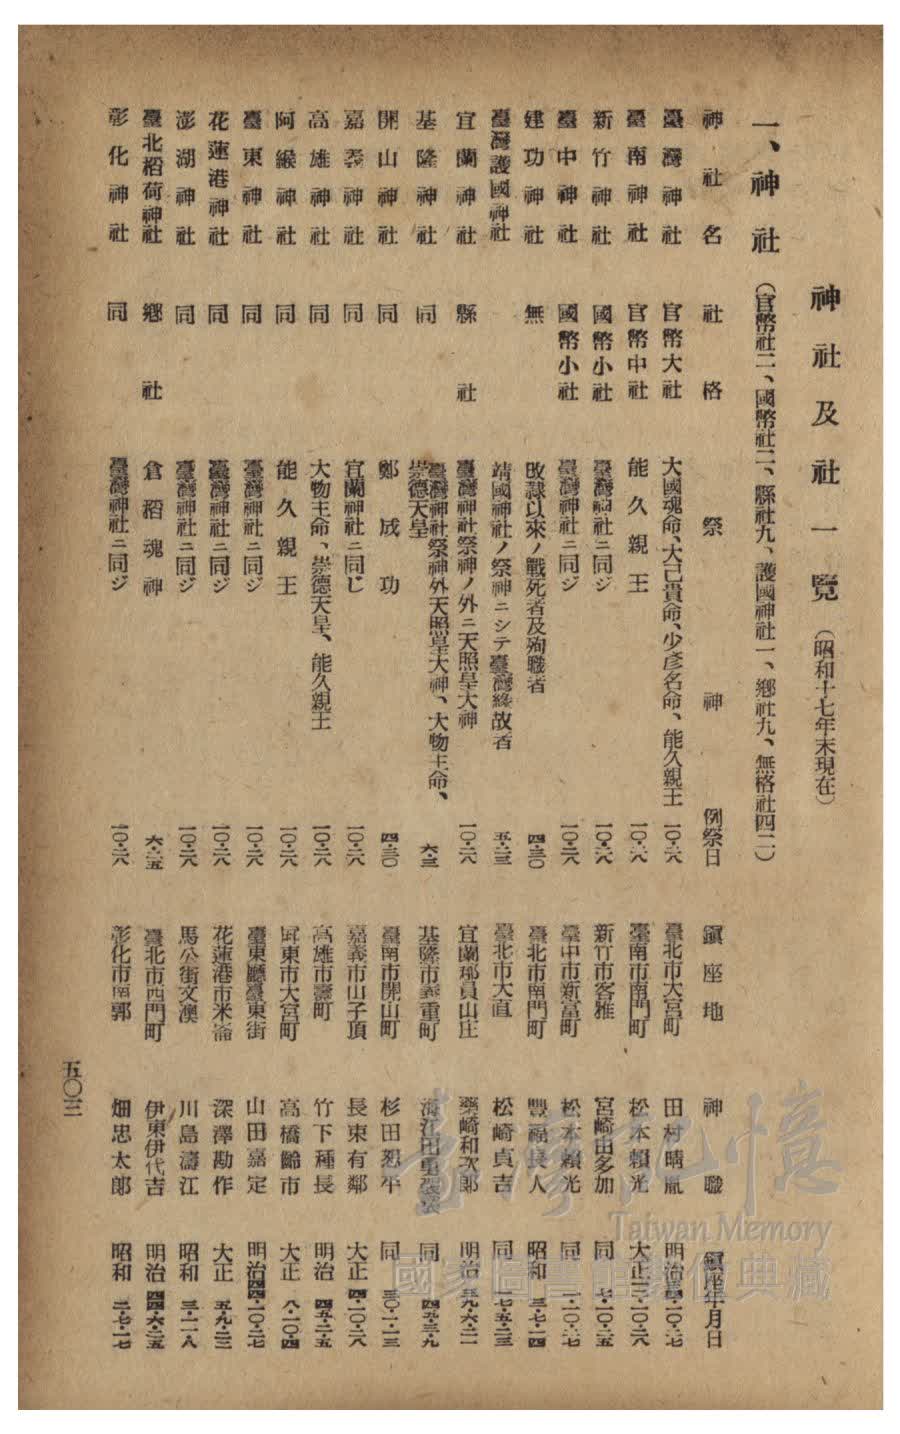 神社及社一覽（昭和十七年末現在）
一、神社（官幣社二、國幣社二、縣社九、護國神社一、鄕社九、無格社四二）
神社名 社格 祭神 例祭日 鎭座地 神職 鎭座年月日
臺灣神社 官幣大社 大國魂命、大己貴命、少彥名命、能久親王 一〇・二八 臺北市大宮町 田村晴胤 明治 一〇・二七
臺南神社 官幣中社 能久親王 一〇・二八 臺南市南門町 松本賴光 大正 一〇・二八
新竹神社 國幣小社 臺灣神社ニ同ジ 一〇・二八 新竹市客雅 宮崎由多加 同 七・一〇・二五
臺中神社 國幣小社 臺灣神社ニ同ジ 一〇・二八 臺中市新富町 松本賴光 同 一・一〇・二七
建功神社 無 改隸以來ノ戰死者及殉職者 四・三〇 臺北市南門町 豐福長人 昭和 三・七・一四
臺灣護國神社 靖國神社ノ祭神ニシテ臺灣緣故者 五・二三 臺北市大直 松崎貞吉 同 一七・五・二三
宜蘭神社 縣社 臺灣神社祭神ノ外ニ天照皇大神 一〇・二八 宜蘭郡員山庄 藥崎和次郞 明治 三九・六・二一
基隆神社 同 臺灣神社祭神外天照皇大神、大物主命、崇德天皇 六・三 基隆市義重町 同 四五・三・九
開山神社 同 鄭成功 四・三〇 臺南市開山町 杉田恕平 同 三〇・一・一三
嘉義神社 同 宜蘭神社ニ同じ 一〇・二八 嘉義市山子頂 長東有鄰 大正 四・一〇・二八
高雄神社 同 大物主命、崇德天皇、能久親王 一〇・二八 高雄市壽町 竹下種長 明治 四五・二・五
阿緱神社 同 能久親王 一〇・二八 屛東市大宮町 高橋齡市 大正 八・一〇・四
臺東神社 同 臺灣神社ニ同ジ 一〇・二八 臺東廳臺東街 山田嘉定 明治 四四・一〇・二七
花蓮港神社 同 臺灣神社ニ同ジ 一〇・二八 花蓮港市米崙 深澤勘作 大正 五・九・二二
澎湖神社 同 臺灣神社ニ同ジ 一〇・二八 馬公街文澳 川島濤江 昭和 三・一一・八
臺北稻荷神社 鄕社 倉稻魂神 六・二五 臺北市西門町 伊東伊代吉 明治 四四・六・二五
彰化神社 同 臺灣神社ニ同ジ 一〇・二八 彰化市南郭 畑忠太郞 昭和 二・七・一七
五〇三
臺灣記憶
Taiwan Memory
國家圖書館數位典藏